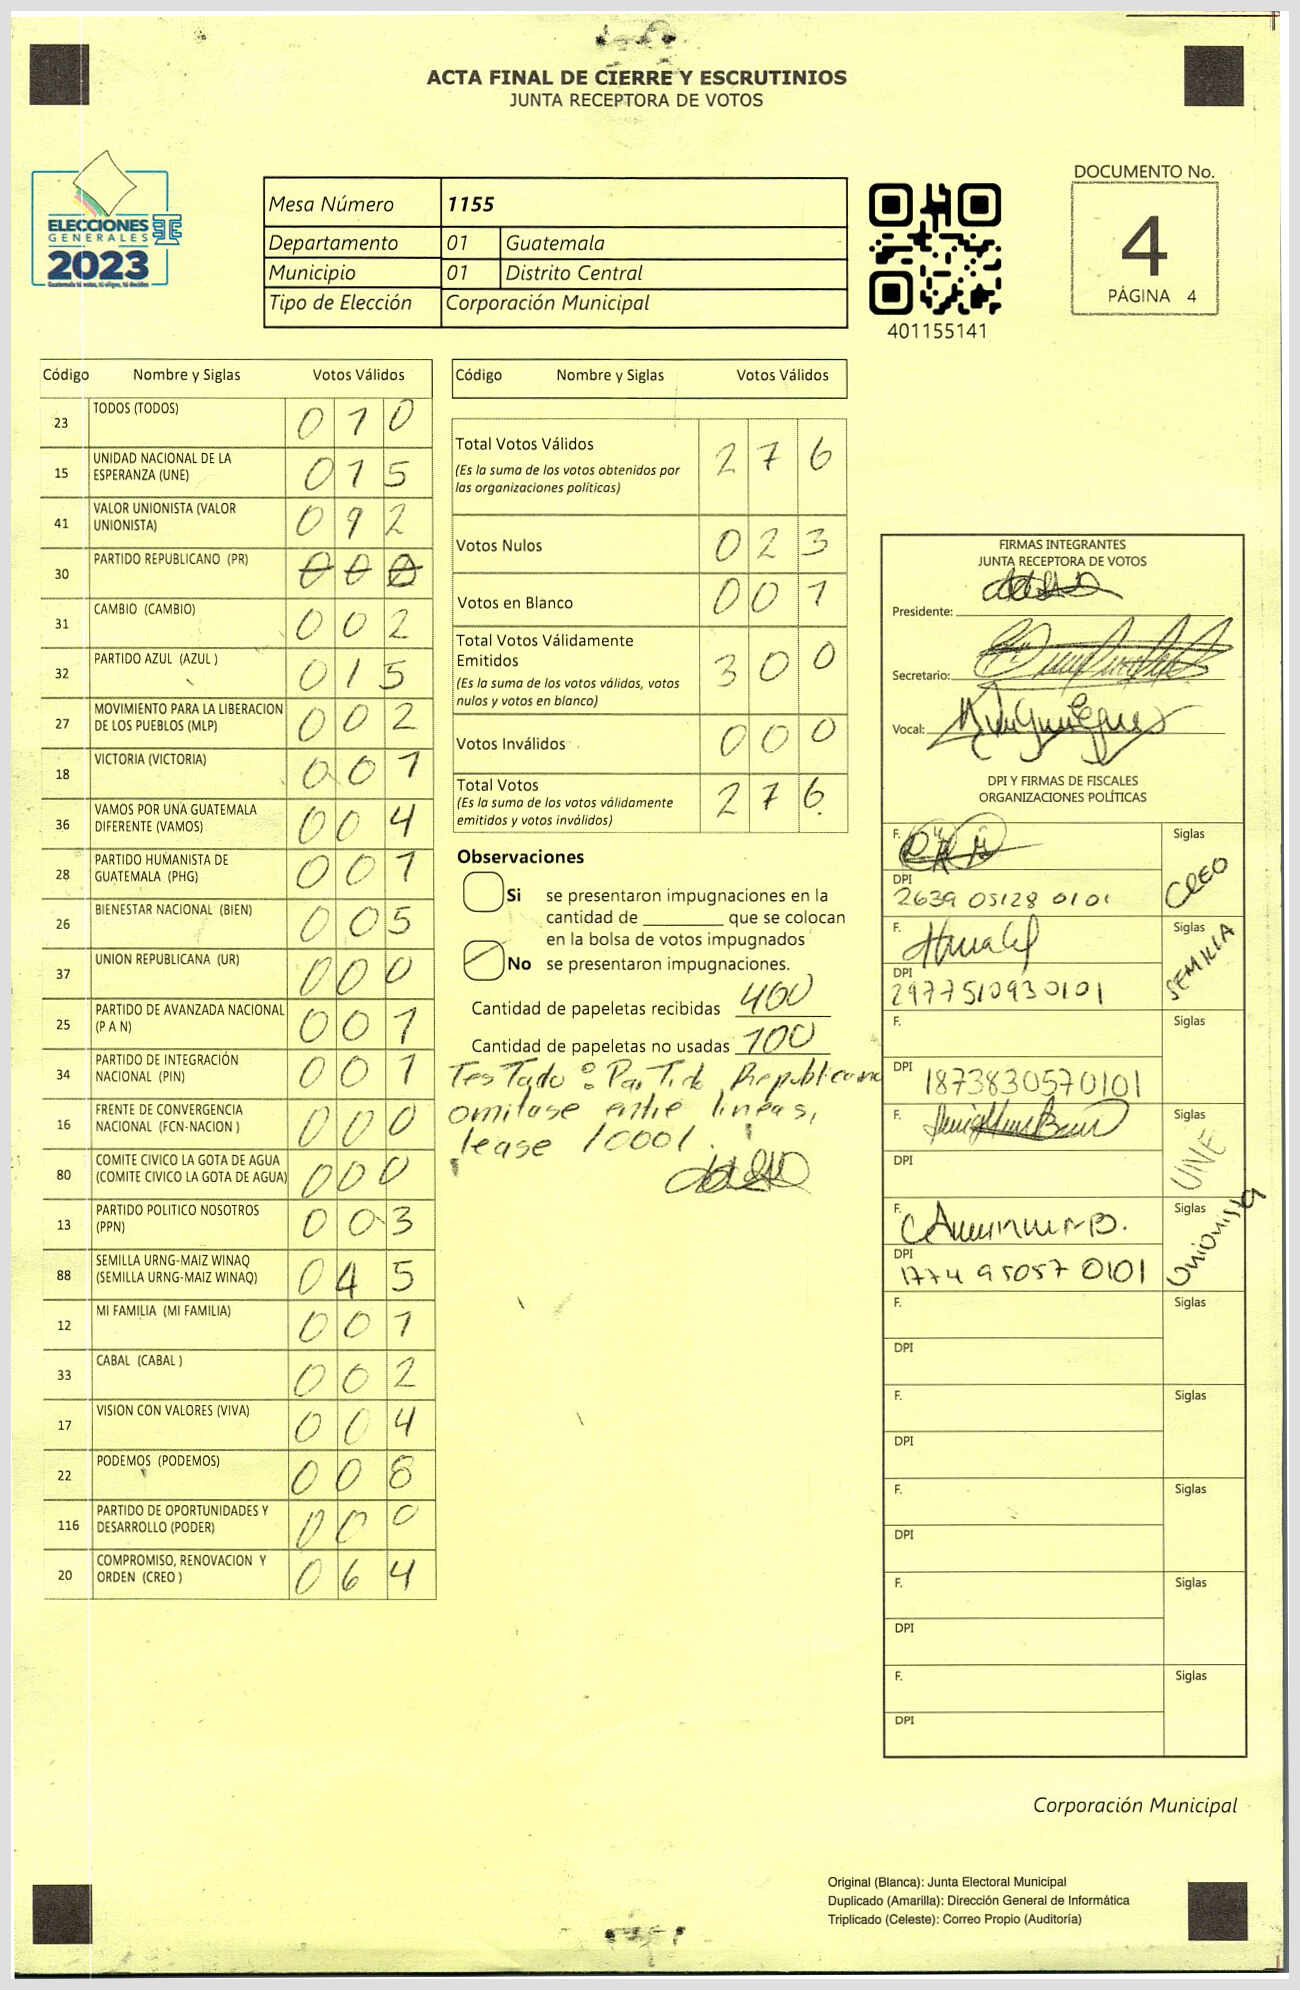 ACTA FINAL DE CIERRE Y ESCRUTINIOS
JUNTA RECEPTORA DE VOTOS
ELECCIONES
GENERALES
2023
Mesa Número 1155
Departamento 01 Guatemala
Municipio 01 Distrito Central
Tipo de Elección Corporación Municipal
401155141
DOCUMENTO No.
4
PÁGINA 4
Código Nombre y Siglas Votos Válidos
23 TODOS (TODOS) 0 1 0
15 UNIDAD NACIONAL DE LA
ESPERANZA (UNE) 0 1 5
41 VALOR UNIONISTA (VALOR
UNIONISTA) 0 9 2
30 PARTIDO REPUBLICANO (PR) 0 0 0
31 CAMBIO (CAMBIO) 0 0 2
32 PARTIDO AZUL (AZUL ) 0 1 5
27 MOVIMIENTO PARA LA LIBERACION
DE LOS PUEBLOS (MLP) 0 0 2
18 VICTORIA (VICTORIA) 0 0 1
36 VAMOS POR UNA GUATEMALA
DIFERENTE (VAMOS) 0 0 4
28 PARTIDO HUMANISTA DE
GUATEMALA (PHG) 0 0 1
26 BIENESTAR NACIONAL (BIEN) 0 0 5
37 UNION REPUBLICANA (UR) 0 0 0
25 PARTIDO DE AVANZADA NACIONAL
(P A N) 0 0 1
34 PARTIDO DE INTEGRACIÓN
NACIONAL (PIN) 0 0 1
16 FRENTE DE CONVERGENCIA
NACIONAL (FCN-NACION ) 0 0 0
80 COMITE CIVICO LA GOTA DE AGUA
(COMITE CIVICO LA GOTA DE AGUA) 0 0 0
13 PARTIDO POLITICO NOSOTROS
(PPN) 0 0 3
88 SEMILLA URNG-MAIZ WINAQ
(SEMILLA URNG-MAIZ WINAQ) 0 4 5
12 MI FAMILIA (MI FAMILIA) 0 0 1
33 CABAL (CABAL ) 0 0 2
17 VISION CON VALORES (VIVA) 0 0 4
22 PODEMOS (PODEMOS) 0 0 8
116 PARTIDO DE OPORTUNIDADES Y
DESARROLLO (PODER) 0 0 0
20 COMPROMISO, RENOVACION Y
ORDEN (CREO ) 0 6 4
Código Nombre y Siglas Votos Válidos
Total Votos Válidos 2 7 6
(Es la suma de los votos obtenidos por
las organizaciones políticas)
Votos Nulos 0 2 3
Votos en Blanco 0 0 1
Total Votos Válidamente
Emitidos 3 0 0
(Es la suma de los votos válidos, votos
nulos y votos en blanco)
Votos Inválidos 0 0 0
Total Votos 2 7 6
(Es la suma de los votos válidamente
emitidos y votos inválidos)
Observaciones
Si se presentaron impugnaciones en la
cantidad de ________ que se colocan
en la bolsa de votos impugnados
No se presentaron impugnaciones.
Cantidad de papeletas recibidas 400
Cantidad de papeletas no usadas 100
Testado: Partido Republicano
omitase entre lineas,
lease /000/.
FIRMAS INTEGRANTES
JUNTA RECEPTORA DE VOTOS
Presidente:
Secretario:
Vocal:
DPI Y FIRMAS DE FISCALES
ORGANIZACIONES POLÍTICAS
F. Siglas
CREO
DPI
2639 05128 0101
F. Siglas
SEMILLA
DPI
2977510930101
F. Siglas
DPI 1873830570101
F. Siglas
UNE
DPI
F. Siglas
Unionista
DPI
1774 95057 0101
F. Siglas
DPI
F. Siglas
DPI
F. Siglas
DPI
F. Siglas
DPI
F. Siglas
DPI
Corporación Municipal
Original (Blanca): Junta Electoral Municipal
Duplicado (Amarilla): Dirección General de Informática
Triplicado (Celeste): Correo Propio (Auditoría)